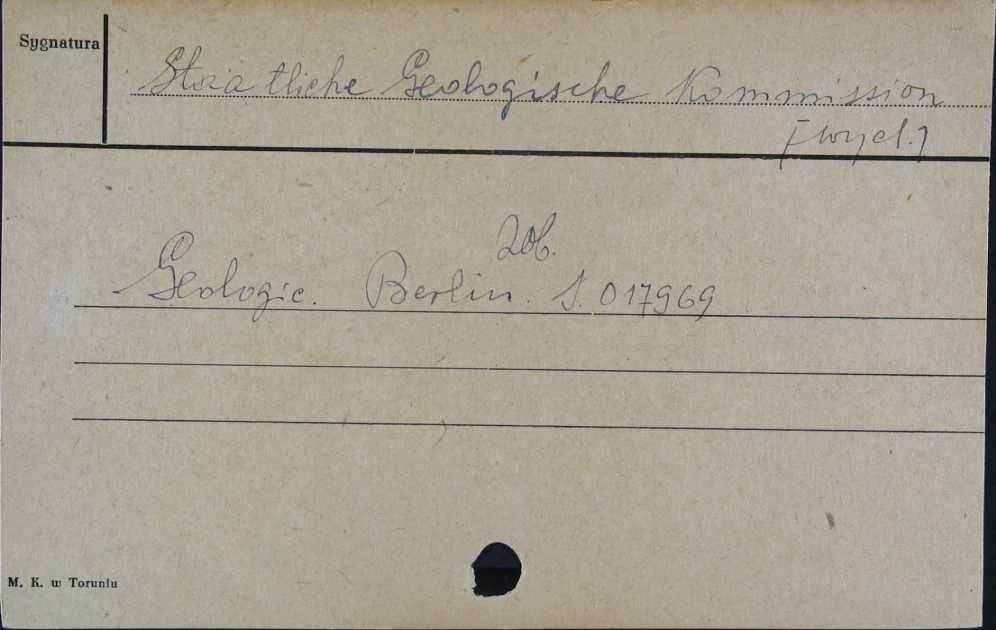 Sygnatura
Staatliche Geologische Kommission
[wyd.]
zob.
Geologie. Berlin. S. 017969
M. K. w Toruniu